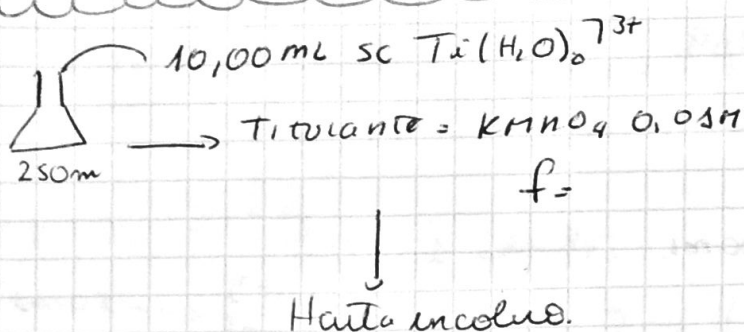 10,00 mL sc Ti(H₂O)₆]³⁺
Titulante = KMnO₄ 0,01M
250m
f=
Hasta incoloro.